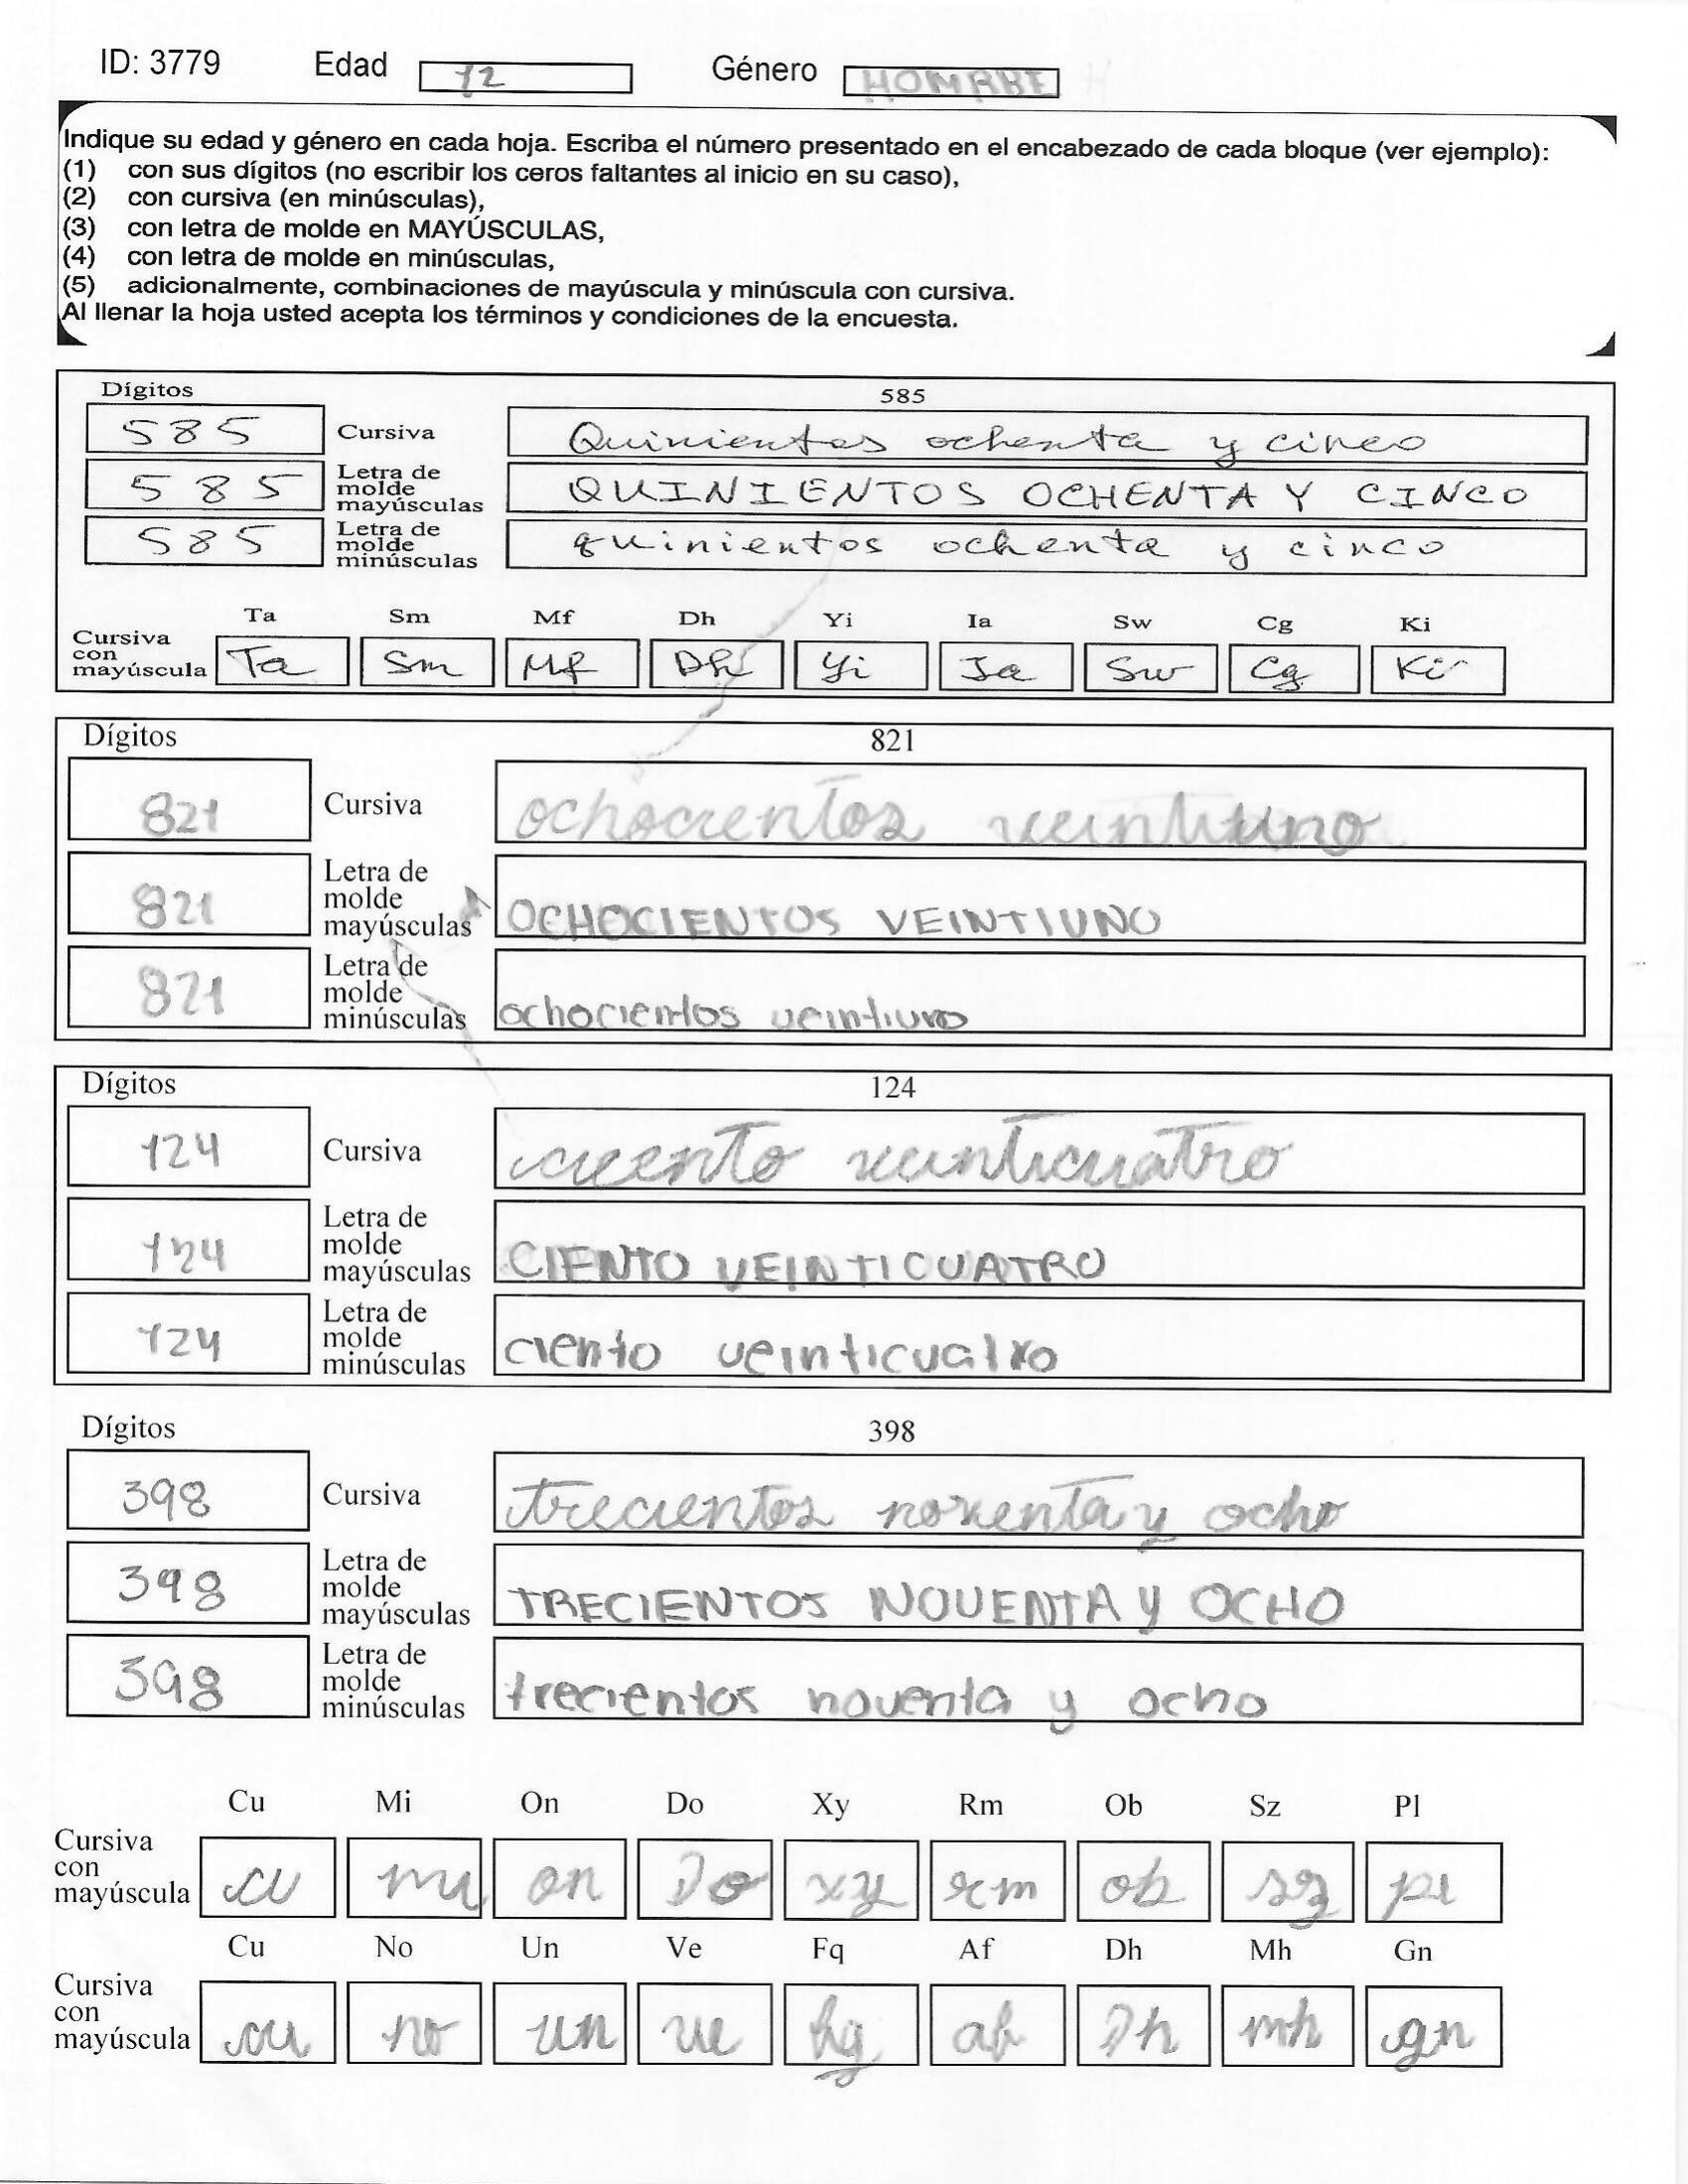 ID: 3779 Edad 12 Género HOMBRE H
Indique su edad y género en cada hoja. Escriba el número presentado en el encabezado de cada bloque (ver ejemplo):
(1) con sus dígitos (no escribir los ceros faltantes al inicio en su caso),
(2) con cursiva (en minúsculas),
(3) con letra de molde en MAYÚSCULAS,
(4) con letra de molde en minúsculas,
(5) adicionalmente, combinaciones de mayúscula y minúscula con cursiva.
Al llenar la hoja usted acepta los términos y condiciones de la encuesta.
Dígitos 585
585 Cursiva Quinientos ochenta y cinco
585 Letra de molde mayúsculas QUINIENTOS OCHENTA Y CINCO
585 Letra de molde minúsculas quinientos ochenta y cinco
Ta Sm Mf Dh Yi Ia Sw Cg Ki
Cursiva con mayúscula Ta Sm Mf Dh Yi Ia Sw Cg Ki
Dígitos 821
821 Cursiva ochocientos veintiuno
821 Letra de molde mayúsculas OCHOCIENTOS VEINTIUNO
821 Letra de molde minúsculas ochocientos veintiuno
Dígitos 124
124 Cursiva ciento veinticuatro
124 Letra de molde mayúsculas CIENTO VEINTICUATRO
124 Letra de molde minúsculas ciento veinticuatro
Dígitos 398
398 Cursiva trecientos noventa y ocho
398 Letra de molde mayúsculas TRECIENTOS NOVENTA Y OCHO
398 Letra de molde minúsculas trecientos noventa y ocho
Cu Mi On Do Xy Rm Ob Sz Pl
Cursiva con mayúscula cu mi on Do xy rm ob sz pl
Cu No Un Ve Fq Af Dh Mh Gn
Cursiva con mayúscula cu no un ve fq af Dh mh gn